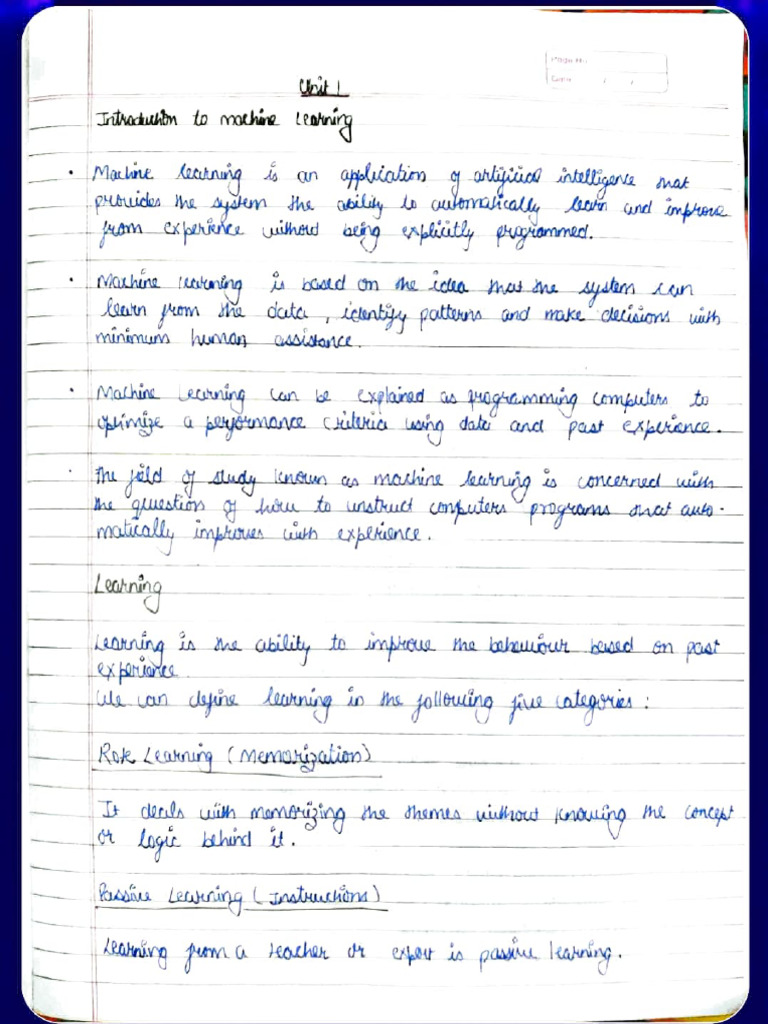 Page No.
Date / /
Unit 1
Introduction to machine Learning
• Machine learning is an application of artificial intelligence that
provides the system the ability to automatically learn and improve
from experience without being explicitly programmed.
• Machine learning is based on the idea that the system can
learn from the data, identify patterns and make decisions with
minimum human assistance.
• Machine Learning can be explained as programming computers to
optimize a performance criteria using data and past experience.
• The field of study known as machine learning is concerned with
the question of how to instruct computers programs that auto-
matically improves with experience.
Learning
Learning is the ability to improve the behaviour based on past
experience
We can define learning in the following five categories:
Rote Learning (Memorization)
It deals with memorizing the themes without knowing the concept
or logic behind it.
Passive Learning (Instructions)
Learning from a teacher or expert is passive learning.